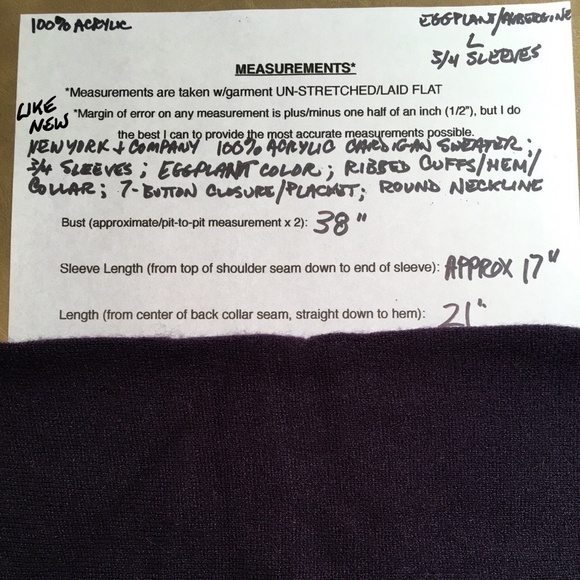 100% ACRYLIC
EGGPLANT/AUBERGINE
L
3/4 SLEEVES
MEASUREMENTS*
*Measurements are taken w/garment UN-STRETCHED/LAID FLAT
LIKE
NEW
*Margin of error on any measurement is plus/minus one half of an inch (1/2"), but I do
the best I can to provide the most accurate measurements possible.
NEW YORK + COMPANY 100% ACRYLIC CARDIGAN SWEATER;
3/4 SLEEVES; EGGPLANT COLOR; RIBBED CUFFS/HEM/
COLLAR; 7-BUTTON CLOSURE/PLACKET; ROUND NECKLINE
Bust (approximate/pit-to-pit measurement x 2): 38"
Sleeve Length (from top of shoulder seam down to end of sleeve): APPROX 17"
Length (from center of back collar seam, straight down to hem): 21"